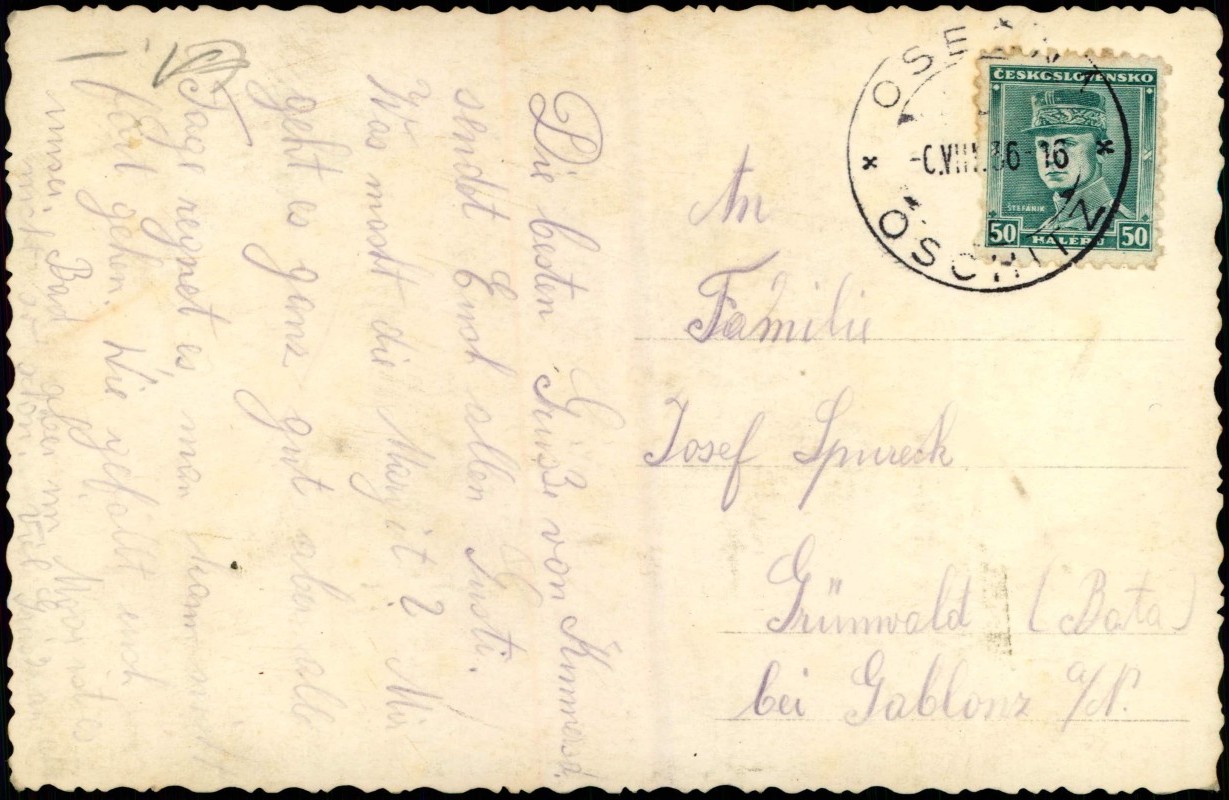 Die besten Grüße von Kummersd.
sendet Euch allen Gusti.
Was macht die Margit? Mir
geht es ganz gut aber alle
Tage regnet es man kann nicht
fort gehen. Wie gefällt euch
unser Bad aber nur
nicht so schön.
OSEČNÁ
-6.VIII.36-16
OSCHITZ
ČESKOSLOVENSKO
ŠTEFÁNIK
50 HALÉŘŮ 50
An
Familie
Josef Spureck
Grünwald (Bata)
bei Gablonz a/N.